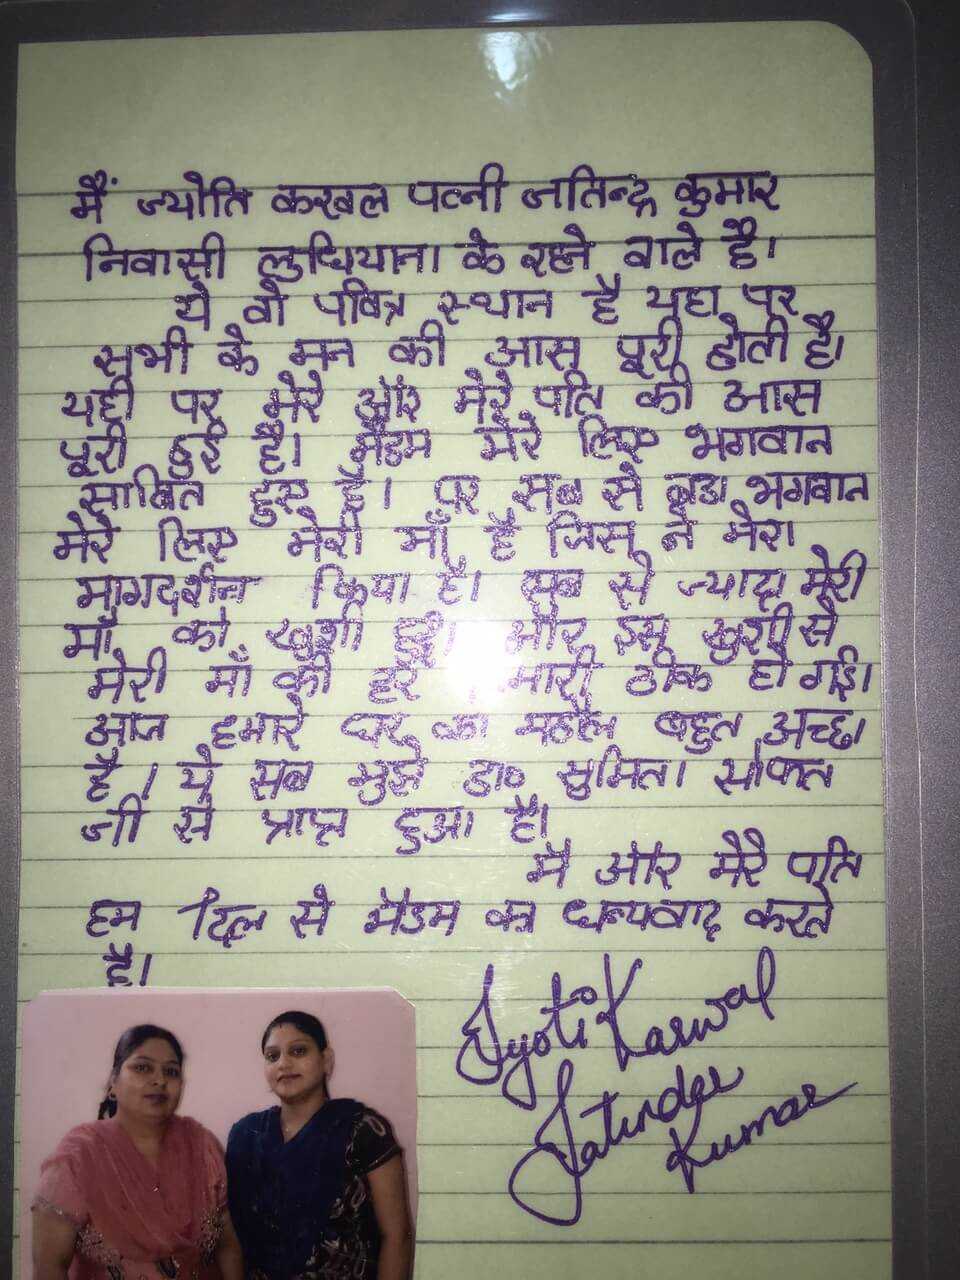 मैं ज्योति करवल पत्नी जतिन्द्र कुमार
निवासी लुधियाना के रहने वाले है।
ये वो पवित्र स्थान है यहा पर
सभी के मन की आस पूरी होती है।
यही पर मेरे और मेरे पति की आस
पूरी हुई है। मैडम मेरे लिए भगवान
साबित हुए है। पर सब से बडा भगवान
मेरे लिए मेरी माँ है जिस ने मेरा
मागदर्शन किया है। सब से ज्यादा मेरी
माँ को खुशी हुई। और इस खुशी से
मेरी माँ की हर मारी ठीक हो गई।
आज हमारे घर का महौल बहुत अच्छा
है। ये सब मुझे डा० सुमिता सोफत
जी से प्राप्त हुआ है।
मै और मेरे पति
हम दिल से मैडम का धन्यवाद करते
है।
Jyoti Karwal
Jatinder
Kumar